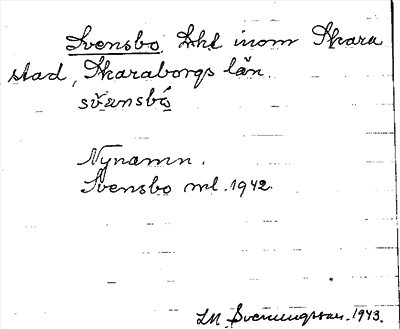 Svensbo. Lht inom Skara
stad, Skaraborgs län.
Nynamn.
Svensbo ml. 1942.
LM. Svenungsson. 1943.